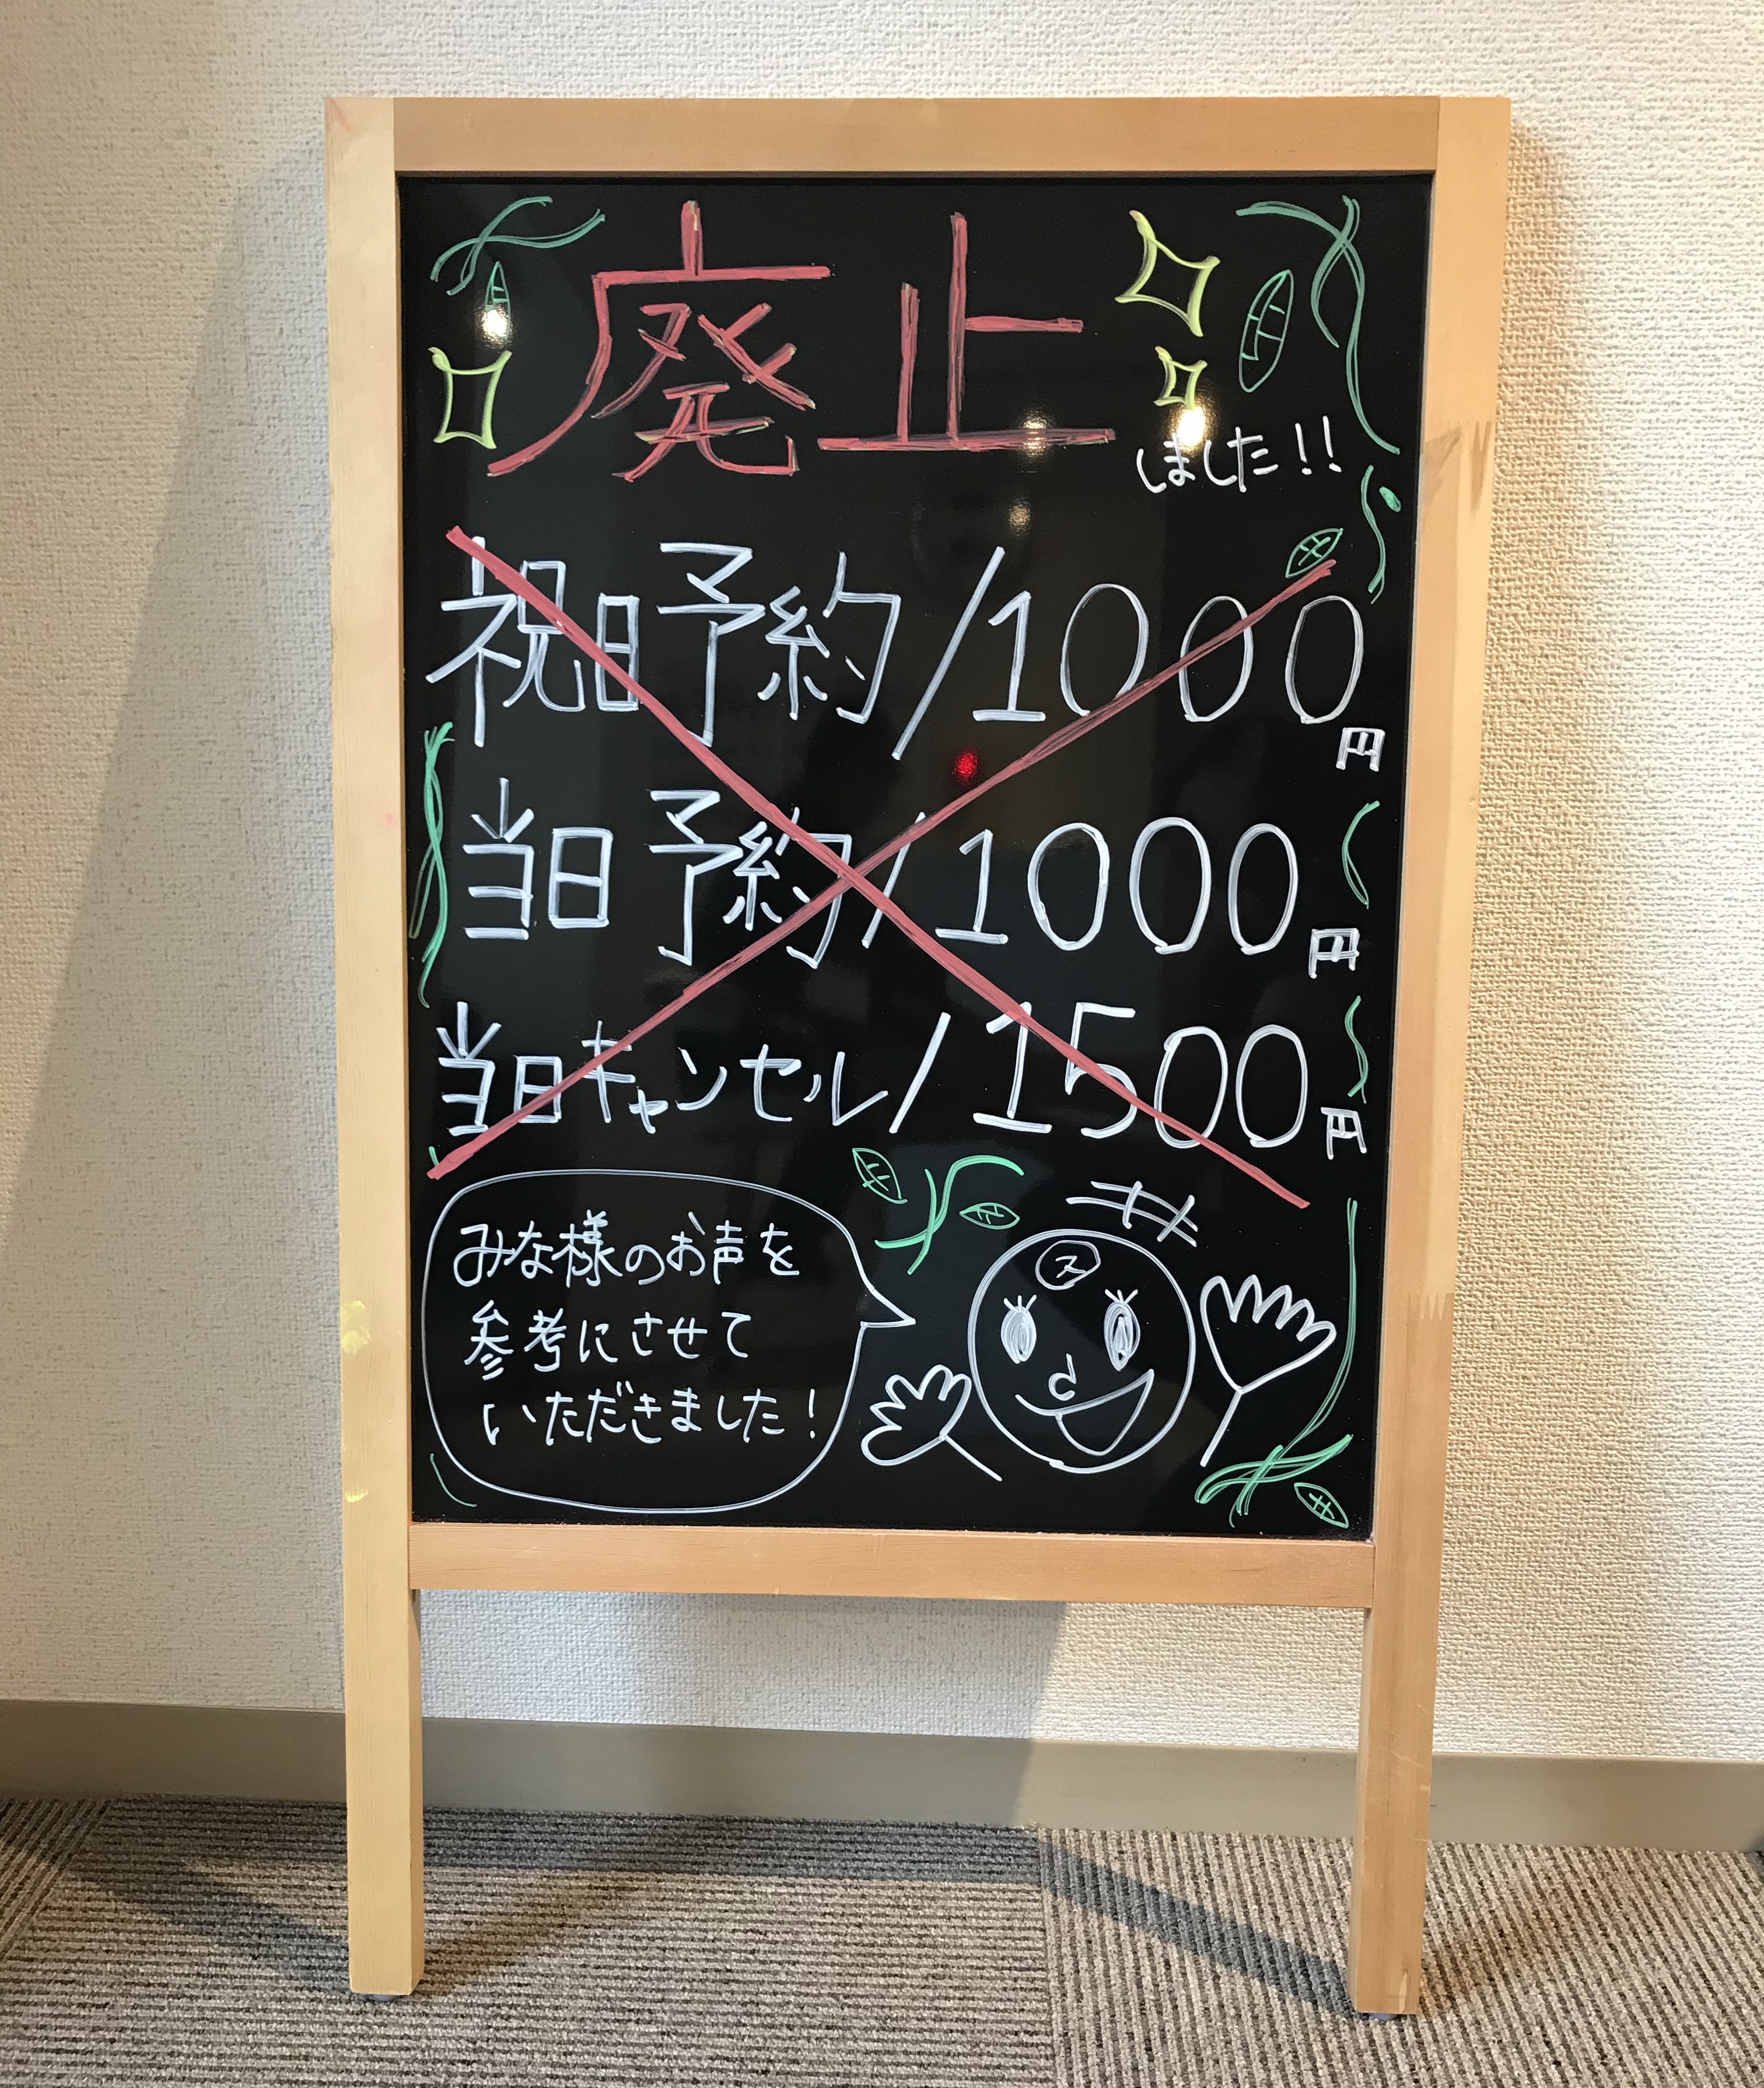 廃止
しました!!
祝日予約/1000円
当日予約/1000円
当日キャンセル/1500円
みな様のお声を
参考にさせて
いただきました!
ス